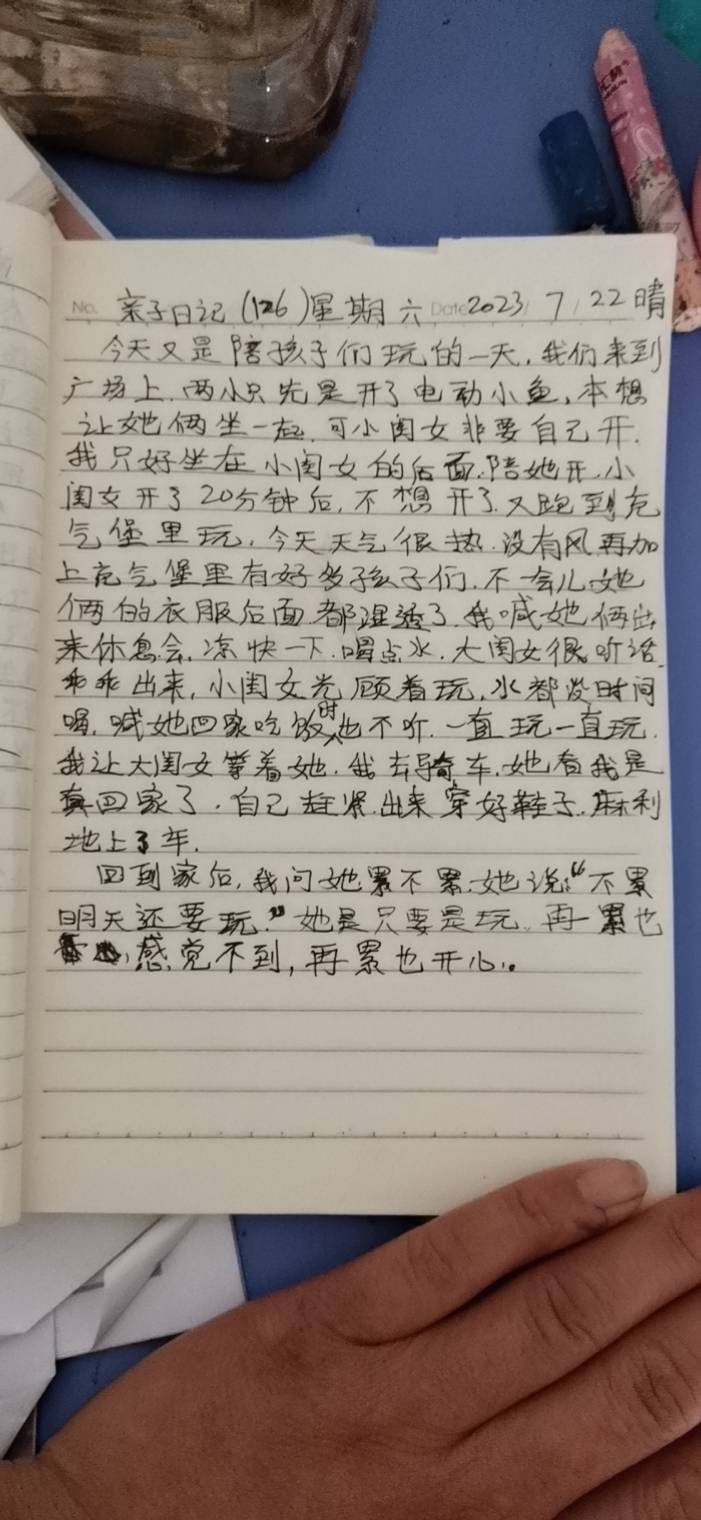 No. 亲子日记(126)星期六 Date 2023 7 22 晴
今天又是陪孩子们玩的一天,我们来到
广场上.两小只先是开了电动小鱼,本想
让她俩坐一起.可小闺女非要自己开.
我只好坐在小闺女的后面.陪她开.小
闺女开了20分钟后,不想开了.又跑到充
气堡里玩,今天天气很热.没有风再加
上充气堡里有好多孩子们.不一会儿她
俩的衣服后面都湿透了.我喊她俩出
来休息会.凉快一下.喝点水.大闺女很听话.
乖乖出来,小闺女光顾着玩,水都没时间
喝.喊她回家吃饭时也不听.一直玩一直玩.
我让大闺女等着她.我去骑车.她看我是
真回家了.自己赶紧.出来穿好鞋子.麻利
地上了车.
回到家后,我问她累不累.她说:"不累
明天还要玩."她是只要是玩.再累也
感觉不到,再累也开心。